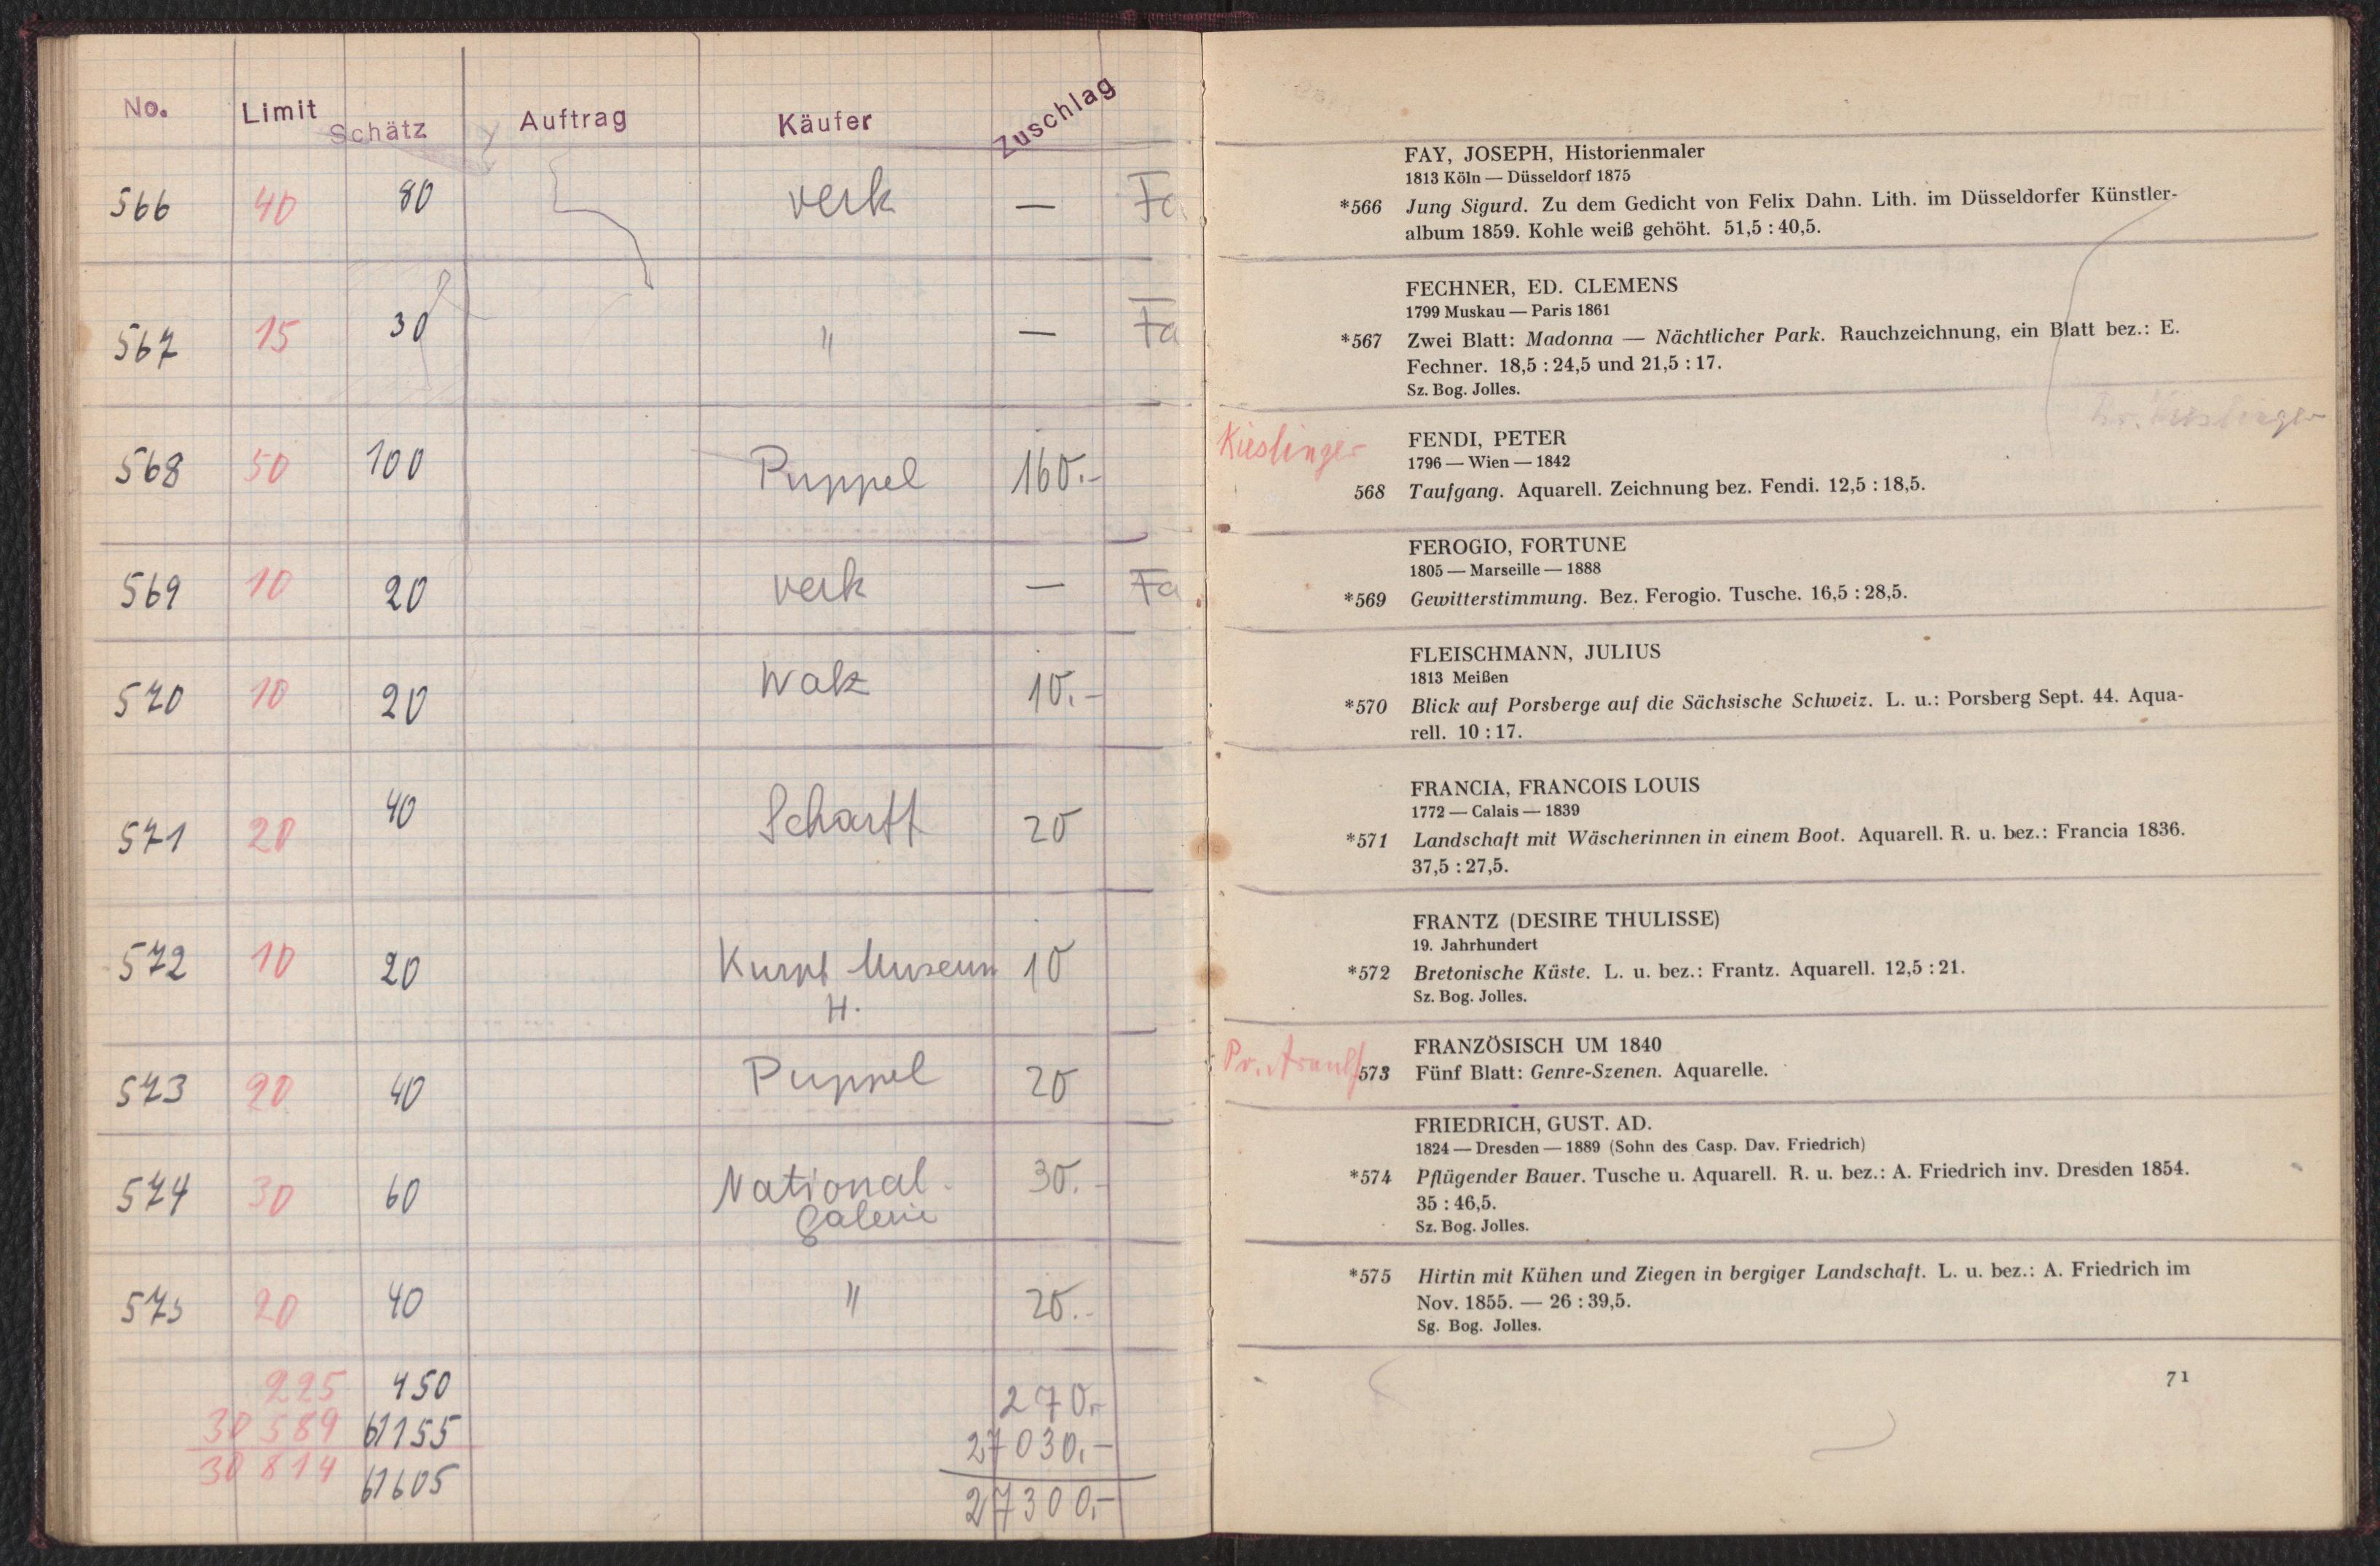 No. Limit Schätz Auftrag Käufer Zuschlag
566 40 80 verk — Fa
567 15 30 " — Fa
568 50 100 Puppel 160.-
569 10 20 verk — Fa
570 10 20 Walz 10.-
571 20 40 Scharff 20
572 10 20 Kurpf Museum 10
H.
573 20 40 Puppel 20
574 30 60 National- 30.-
galerie
575 20 40 " 20.-
225 450 270.-
30 589 61155 27030.-
30 814 61605 27300.-
FAY, JOSEPH, Historienmaler
1813 Köln — Düsseldorf 1875
*566 Jung Sigurd. Zu dem Gedicht von Felix Dahn. Lith. im Düsseldorfer Künstler-
album 1859. Kohle weiß gehöht. 51,5 : 40,5.
FECHNER, ED. CLEMENS
1799 Muskau — Paris 1861
*567 Zwei Blatt: Madonna — Nächtlicher Park. Rauchzeichnung, ein Blatt bez.: E.
Fechner. 18,5 : 24,5 und 21,5 : 17.
Sz. Bog. Jolles.
Kieslinger FENDI, PETER
1796 — Wien — 1842
568 Taufgang. Aquarell. Zeichnung bez. Fendi. 12,5 : 18,5.
FEROGIO, FORTUNE
1805 — Marseille — 1888
*569 Gewitterstimmung. Bez. Ferogio. Tusche. 16,5 : 28,5.
FLEISCHMANN, JULIUS
1813 Meißen
*570 Blick auf Porsberge auf die Sächsische Schweiz. L. u.: Porsberg Sept. 44. Aqua-
rell. 10 : 17.
FRANCIA, FRANCOIS LOUIS
1772 — Calais — 1839
*571 Landschaft mit Wäscherinnen in einem Boot. Aquarell. R. u. bez.: Francia 1836.
37,5 : 27,5.
FRANTZ (DESIRE THULISSE)
19. Jahrhundert
*572 Bretonische Küste. L. u. bez.: Frantz. Aquarell. 12,5 : 21.
Sz. Bog. Jolles.
FRANZÖSISCH UM 1840
573 Fünf Blatt: Genre-Szenen. Aquarelle.
FRIEDRICH, GUST. AD.
1824 — Dresden — 1889 (Sohn des Casp. Dav. Friedrich)
*574 Pflügender Bauer. Tusche u. Aquarell. R. u. bez.: A. Friedrich inv. Dresden 1854.
35 : 46,5.
Sz. Bog. Jolles.
*575 Hirtin mit Kühen und Ziegen in bergiger Landschaft. L. u. bez.: A. Friedrich im
Nov. 1855. — 26 : 39,5.
Sg. Bog. Jolles.
71